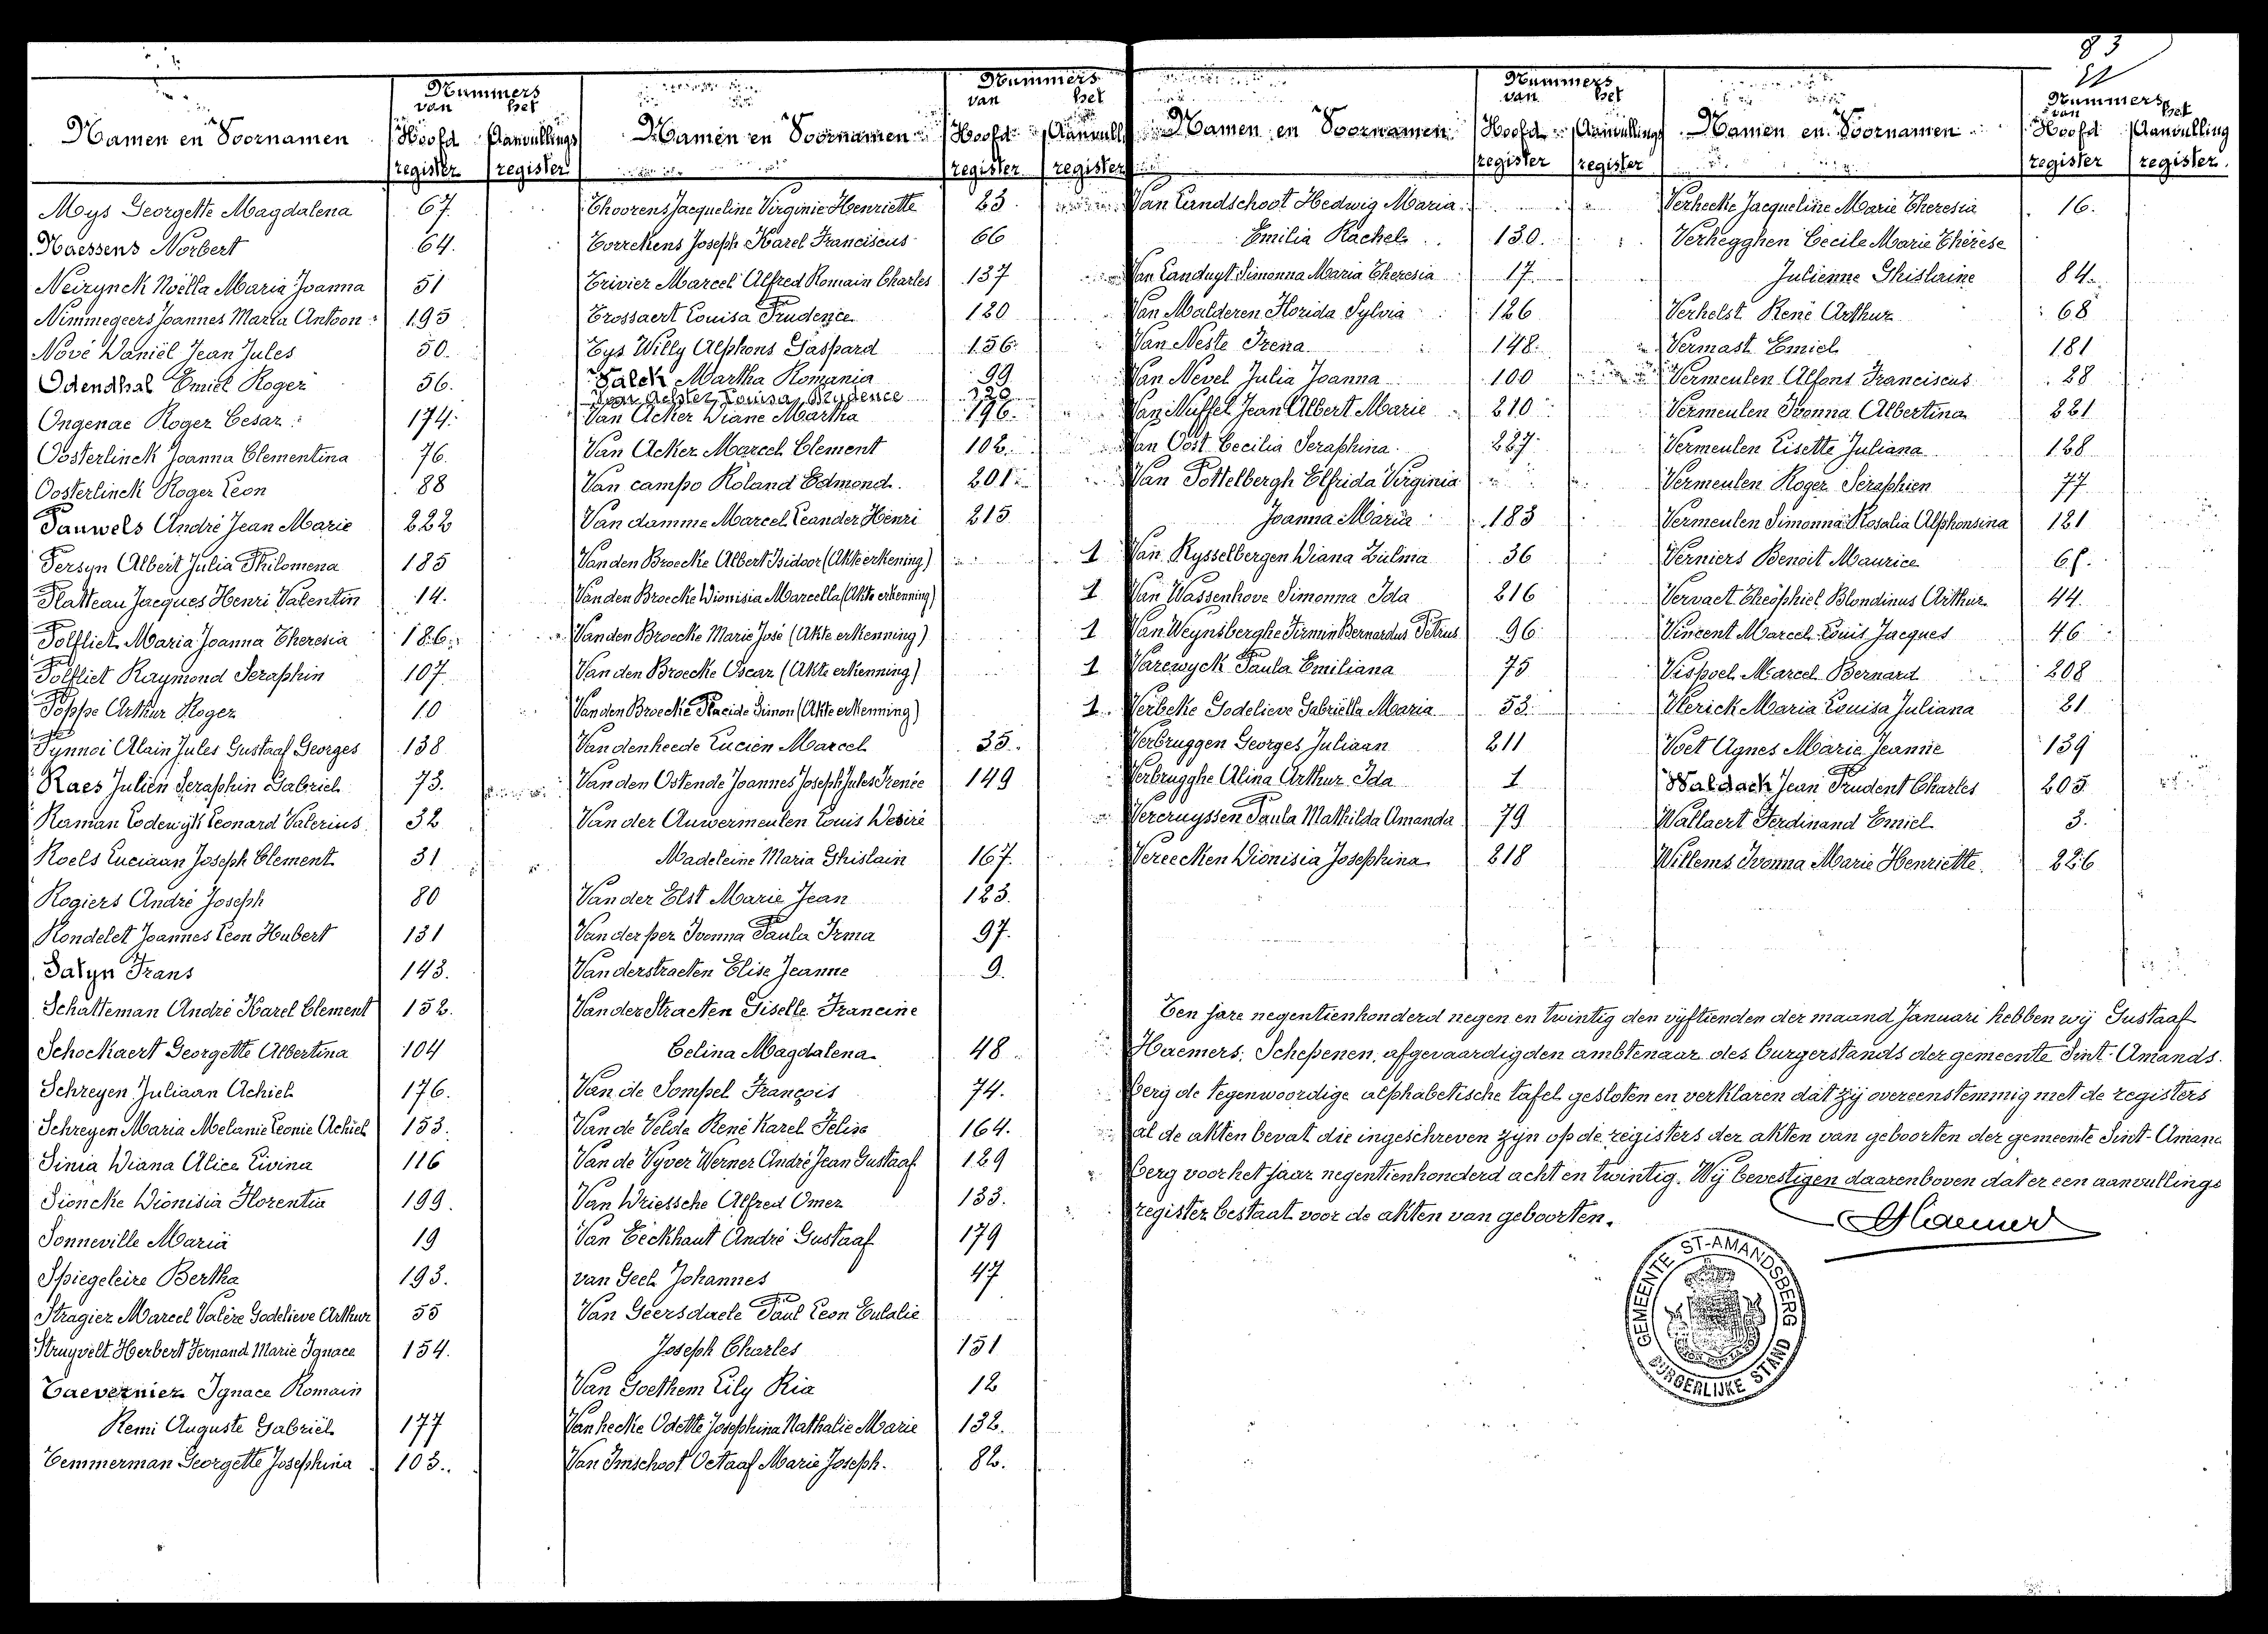 83
Namen en Voornamen
Nummers
van het
Hoofd register
Aanvullings register
Mys Georgette Magdalena 67.
Naessens Norbert 64.
Neirynck Noëlla Maria Joanna 51
Nimmegeers Joannes Maria Antoon 195
Nové Daniël Jean Jules 50.
Odendhal Emiel Roger 56.
Ongenae Roger Cesar 174.
Oosterlinck Joanna Clementina 76.
Oosterlinck Roger Leon 88
Pauwels André Jean Marie 222
Persyn Albert Julia Philomena 185
Platteau Jacques Henri Valentin 14.
Polfliet Maria Joanna Theresia 186.
Polfliet Raymond Seraphin 107
Poppe Arthur Roger 10
Pynnoi Alain Jules Gustaaf Georges 138
Raes Julien Seraphin Gabriel 73.
Raman Lodewijk Leonard Valerius 32
Roels Luciaan Joseph Clement 31
Rogiers André Joseph 80
Rondelet Joannes Leon Hubert 131
Salyn Frans 143.
Schatteman André Karel Clement 152.
Schockaert Georgette Albertina 104
Schreyen Juliaan Achiel 176.
Schreyen Maria Melanie Leonie Achiel 153.
Sinia Diana Alice Livina 116
Sioncke Dionisia Florentia 199.
Sonneville Maria 19
Spiegeleire Bertha 193.
Stragier Marcel Valère Godelieve Arthur 55
Struyvelt Herbert Fernand Marie Ignace 154.
Taevernier Ignace Romain
Remi Auguste Gabriël 177
Temmerman Georgette Josephina 103.
Namen en Voornamen
Nummers
van het
Hoofd register
Aanvull register
Thoorens Jacqueline Virginie Henriette 23
Torrekens Joseph Karel Franciscus 66
Trivier Marcel Alfred Romain Charles 137
Trossaert Louisa Prudence 120
Tys Willy Alphons Gaspard 156
Valck Martha Romania 99
Van Acker Diane Martha 196.
Van Acker Marcel Clement 102.
Van campo Roland Edmond. 201
Van damme Marcel Leander Henri 215
Van den Broecke Albert Isidoor (Akte erkening) 1
Van den Broecke Dionisia Marcella (Akte erkenning) 1
Van den Broecke Marie José (Akte erkenning) 1
Van den Broecke Oscar (Akte erkenning) 1
Van den Broecke Placide Simon (Akte erkenning) 1
Van denheede Lucien Marcel 35.
Van den Ostende Joannes Joseph Jules Irenée 149
Van der Auwermeulen Louis Desiré
Madeleine Maria Ghislain 167.
Van der Elst Marie Jean 123.
Van der per Ivonna Paula Irma 97.
Van derstraeten Elise Jeanne 9.
Van der Straeten Giselle Francine
Celina Magdalena 48
Van de Sompel François 74.
Van de Velde René Karel Félise 164.
Van de Vyver Werner André Jean Gustaaf 129
Van Driessche Alfred Omer 133.
Van Eeckhaut André Gustaaf 179
van Geel Johannes 47
Van Geersdaele Paul Leon Eulalie
Joseph Charles 151
Van Goethem Lily Ria 12
Van hecke Odette Josephina Nathalie Marie 132.
Van Imschoot Octaaf Marie Joseph. 82.
Namen en Voornamen
Nummers
van het
Hoofd register
Aanvullings register
Van Landschoot Hedwig Maria
Emilia Rachel 130.
Van Landuyt Simonna Maria Theresia 17.
Van Malderen Florida Sylvia 126
Van Neste Irena 148.
Van Nevel Julia Joanna 100
Van Nuffel Jean Albert Marie 210
Van Oost Cecilia Seraphina 227.
Van Pottelbergh Elfrida Virginia
Joanna Maria 183
Van Rysselbergen Diana Zulma 36
Van Wassenhove Simonna Ida 216
Van Weynsberghe Firmin Bernardus Petrus 96
Varewyck Paula Emiliana 75
Verbeke Godelieve Gabriella Maria 53.
Verbruggen Georges Juliaan 211
Verbrugghe Alina Arthur Ida 1
Vercruyssen Paula Mathilda Amanda 79
Vereecken Dionisia Josephina 218
Namen en Voornamen
Nummers
van het
Hoofd register
Aanvulling register.
Verhecke Jacqueline Marie Theresia 16.
Verhegghen Cecile Marie Thérèse
Julienne Ghislaine 84.
Verhelst René Arthur 68
Vermast Emiel 181
Vermeulen Alfons Franciscus 28
Vermeulen Ivonna Albertina 221
Vermeulen Lisette Juliana 128
Vermeulen Roger Seraphien 77
Vermeulen Simonna Rosalia Alphonsina 121
Verniers Benoit Maurice
Vervaet Theophiel Blondinus Arthur 44.
Vincent Marcel Louis Jacques 46
Vispoel Marcel Bernard 208
Vlerick Maria Louisa Juliana 21
Voet Agnes Marie Jeanne 139
Waldack Jean Prudent Charles 205
Wallaert Ferdinand Emiel 3.
Willems Ivonna Marie Henriette. 226
Ten jare negentienhonderd negen en twintig den vijftienden der maand Januari hebben wij Gustaaf
Haemers, Schepenen, afgevaardigden ambtenaar des burgerstands der gemeente Sint-Amands.
berg de tegenwoordige alphabetische tafel gesloten en verklaren dat zij overeenstemmig met de registers
al de akten bevat die ingeschreven zijn op de registers der akten van geboorten der gemeente Sint-Amand
berg voor het jaar negentienhonderd acht en twintig. Wij bevestigen daarenboven dat er een aanvullings
register bestaat voor de akten van geboorten.
GEMEENTE ST-AMANDSBERG
BURGERLIJKE STAND